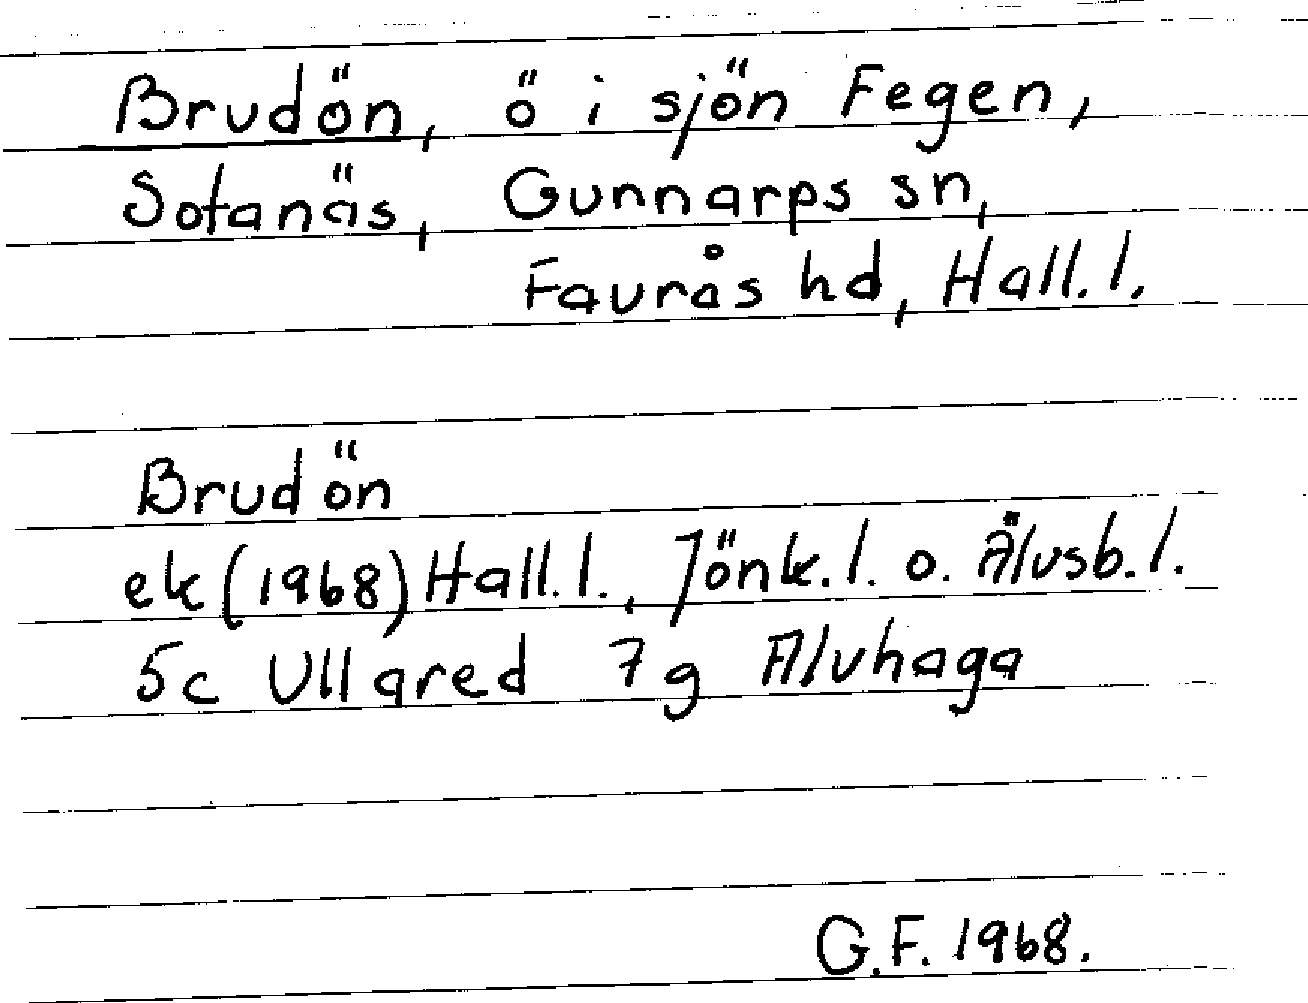 Brudön, ö i sjön Fegen,
Sotanäs, Gunnarps sn,
Faurås hd, Hall. l.
Brudön
ek (1968) Hall. l., Jönk. l. o. Älvsb. l.
5c Ullared 7g Alvhaga
G.F. 1968.